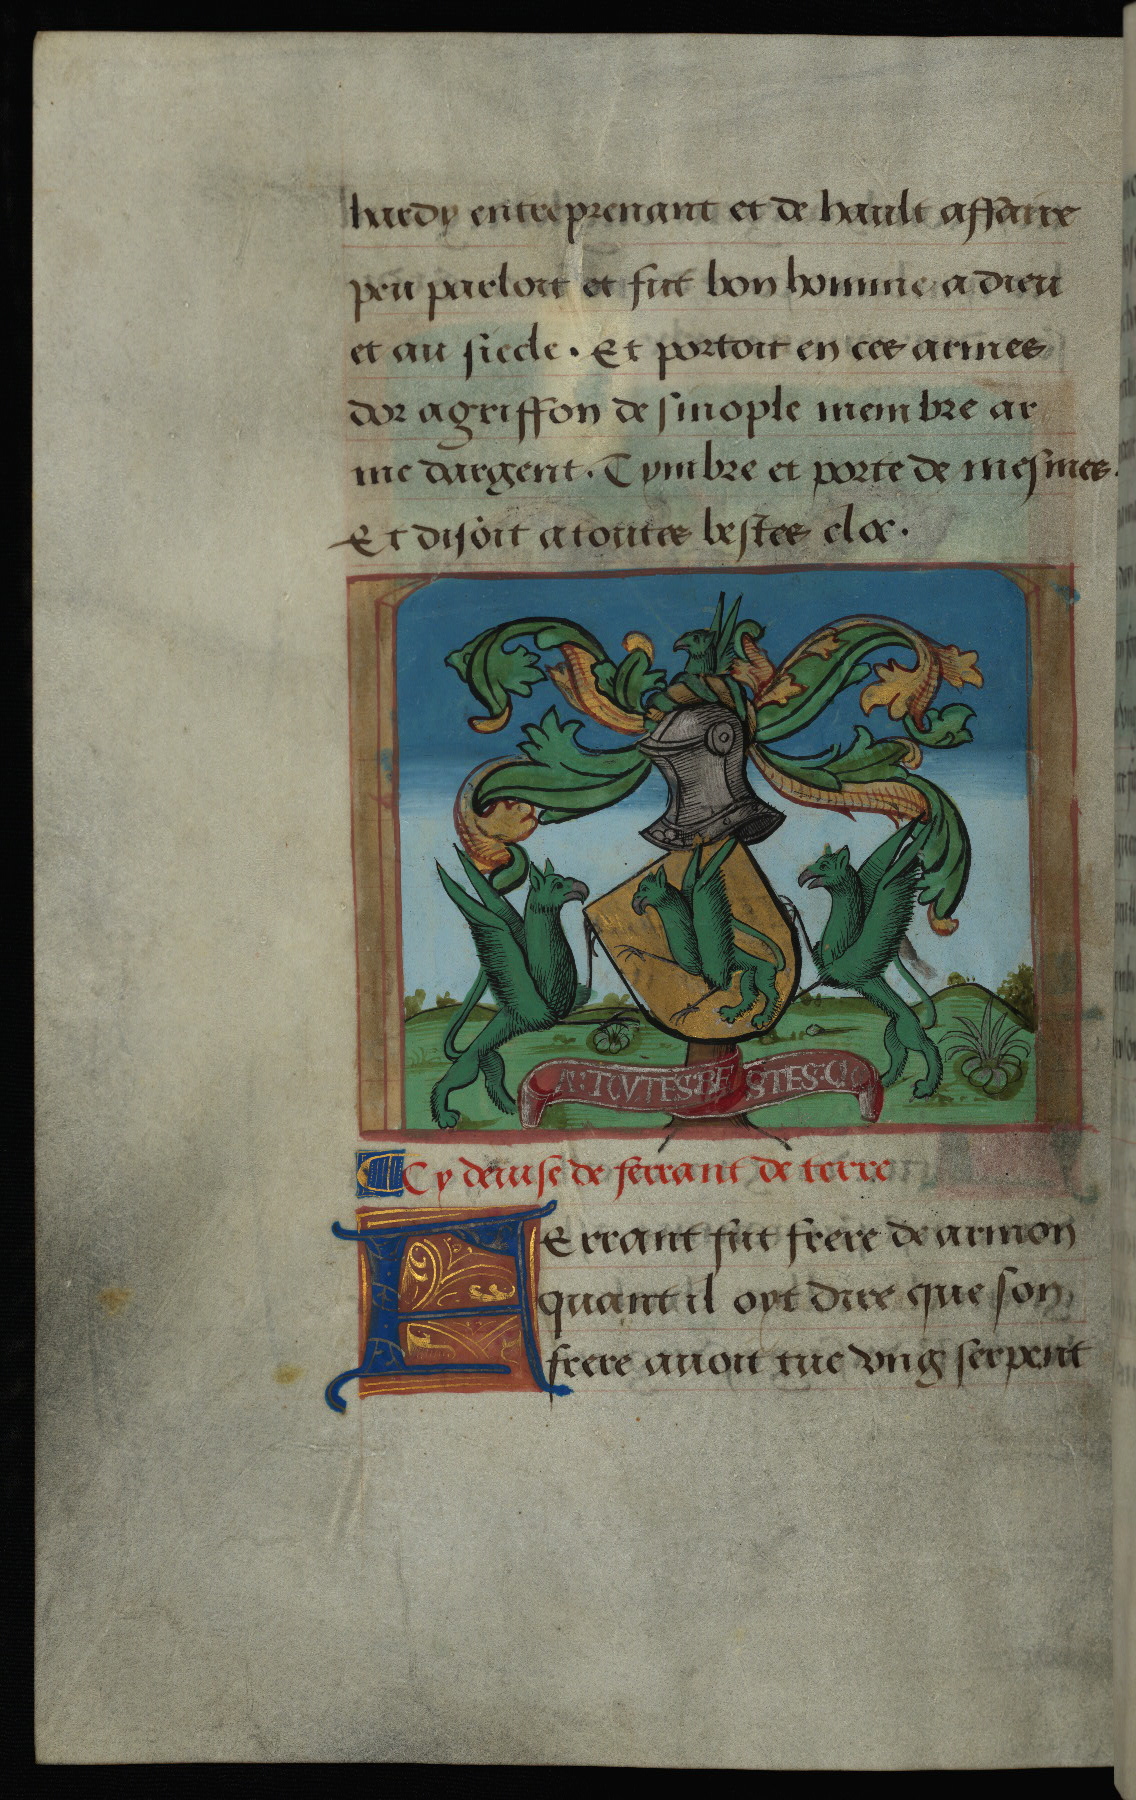 hardy entreprenant et de hault affaire
peu parloit et fut bon homme a dieu
et au siecle. Et portoit en ces armes
dor a griffon de sinople membre ar
me dargent. Tymbre et porte de mesmes.
Et disoit a toutes bestes cloz.
A:TOVTES:BESTES:CLO
Cy devise de ferrant de terre
FErrant fut frere de armon
quant il oyt dire que son
frere auoit tue vng serpent